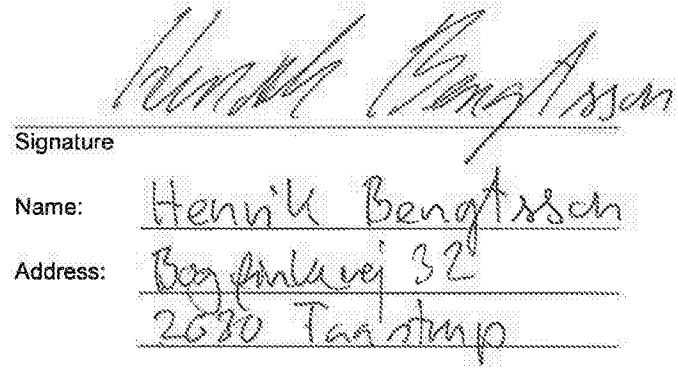 Henrik Bengtsson
Signature
Name: Henrik Bengtsson
Address: Bogfinkevej 32
2630 Taastrup